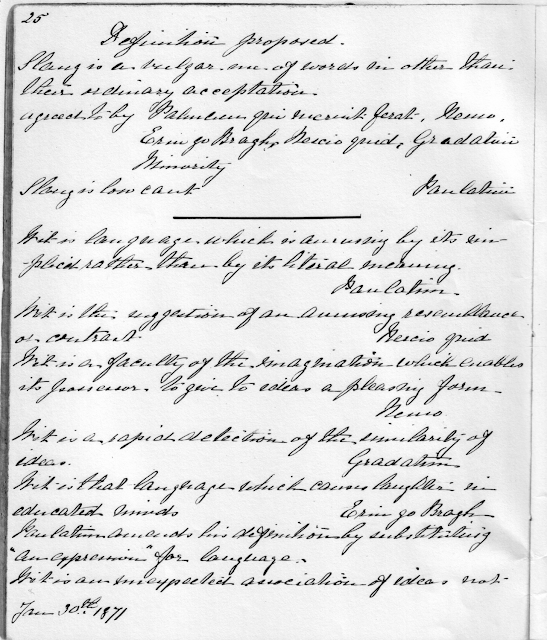 25
Definition proposed.
Slang is a vulgar use of words in other than
their ordinary acceptation
agreed to by Palmam qui meruit ferat, Nemo,
Erin go Bragh, Nescio quid, Gradatim
Minority
Slang is low cant Paulatim
Wit is language which is amusing by its im-
-plied rather than by its literal meaning.
Paulatim
Wit is the suggestion of an amusing resemblance
or contrast Nescio quid
Wit is a faculty of the imagination which enables
its possessor to give to ideas a pleasing form
Nemo
Wit is a rapid detection of the similarity of
ideas. Gradatim
Wit is that language which causes laughter in
educated minds Erin go Bragh
Paulatim amends his definition by substituting
"an expression" for language.
Wit is an unexpected association of ideas not
Jan 30th 1871